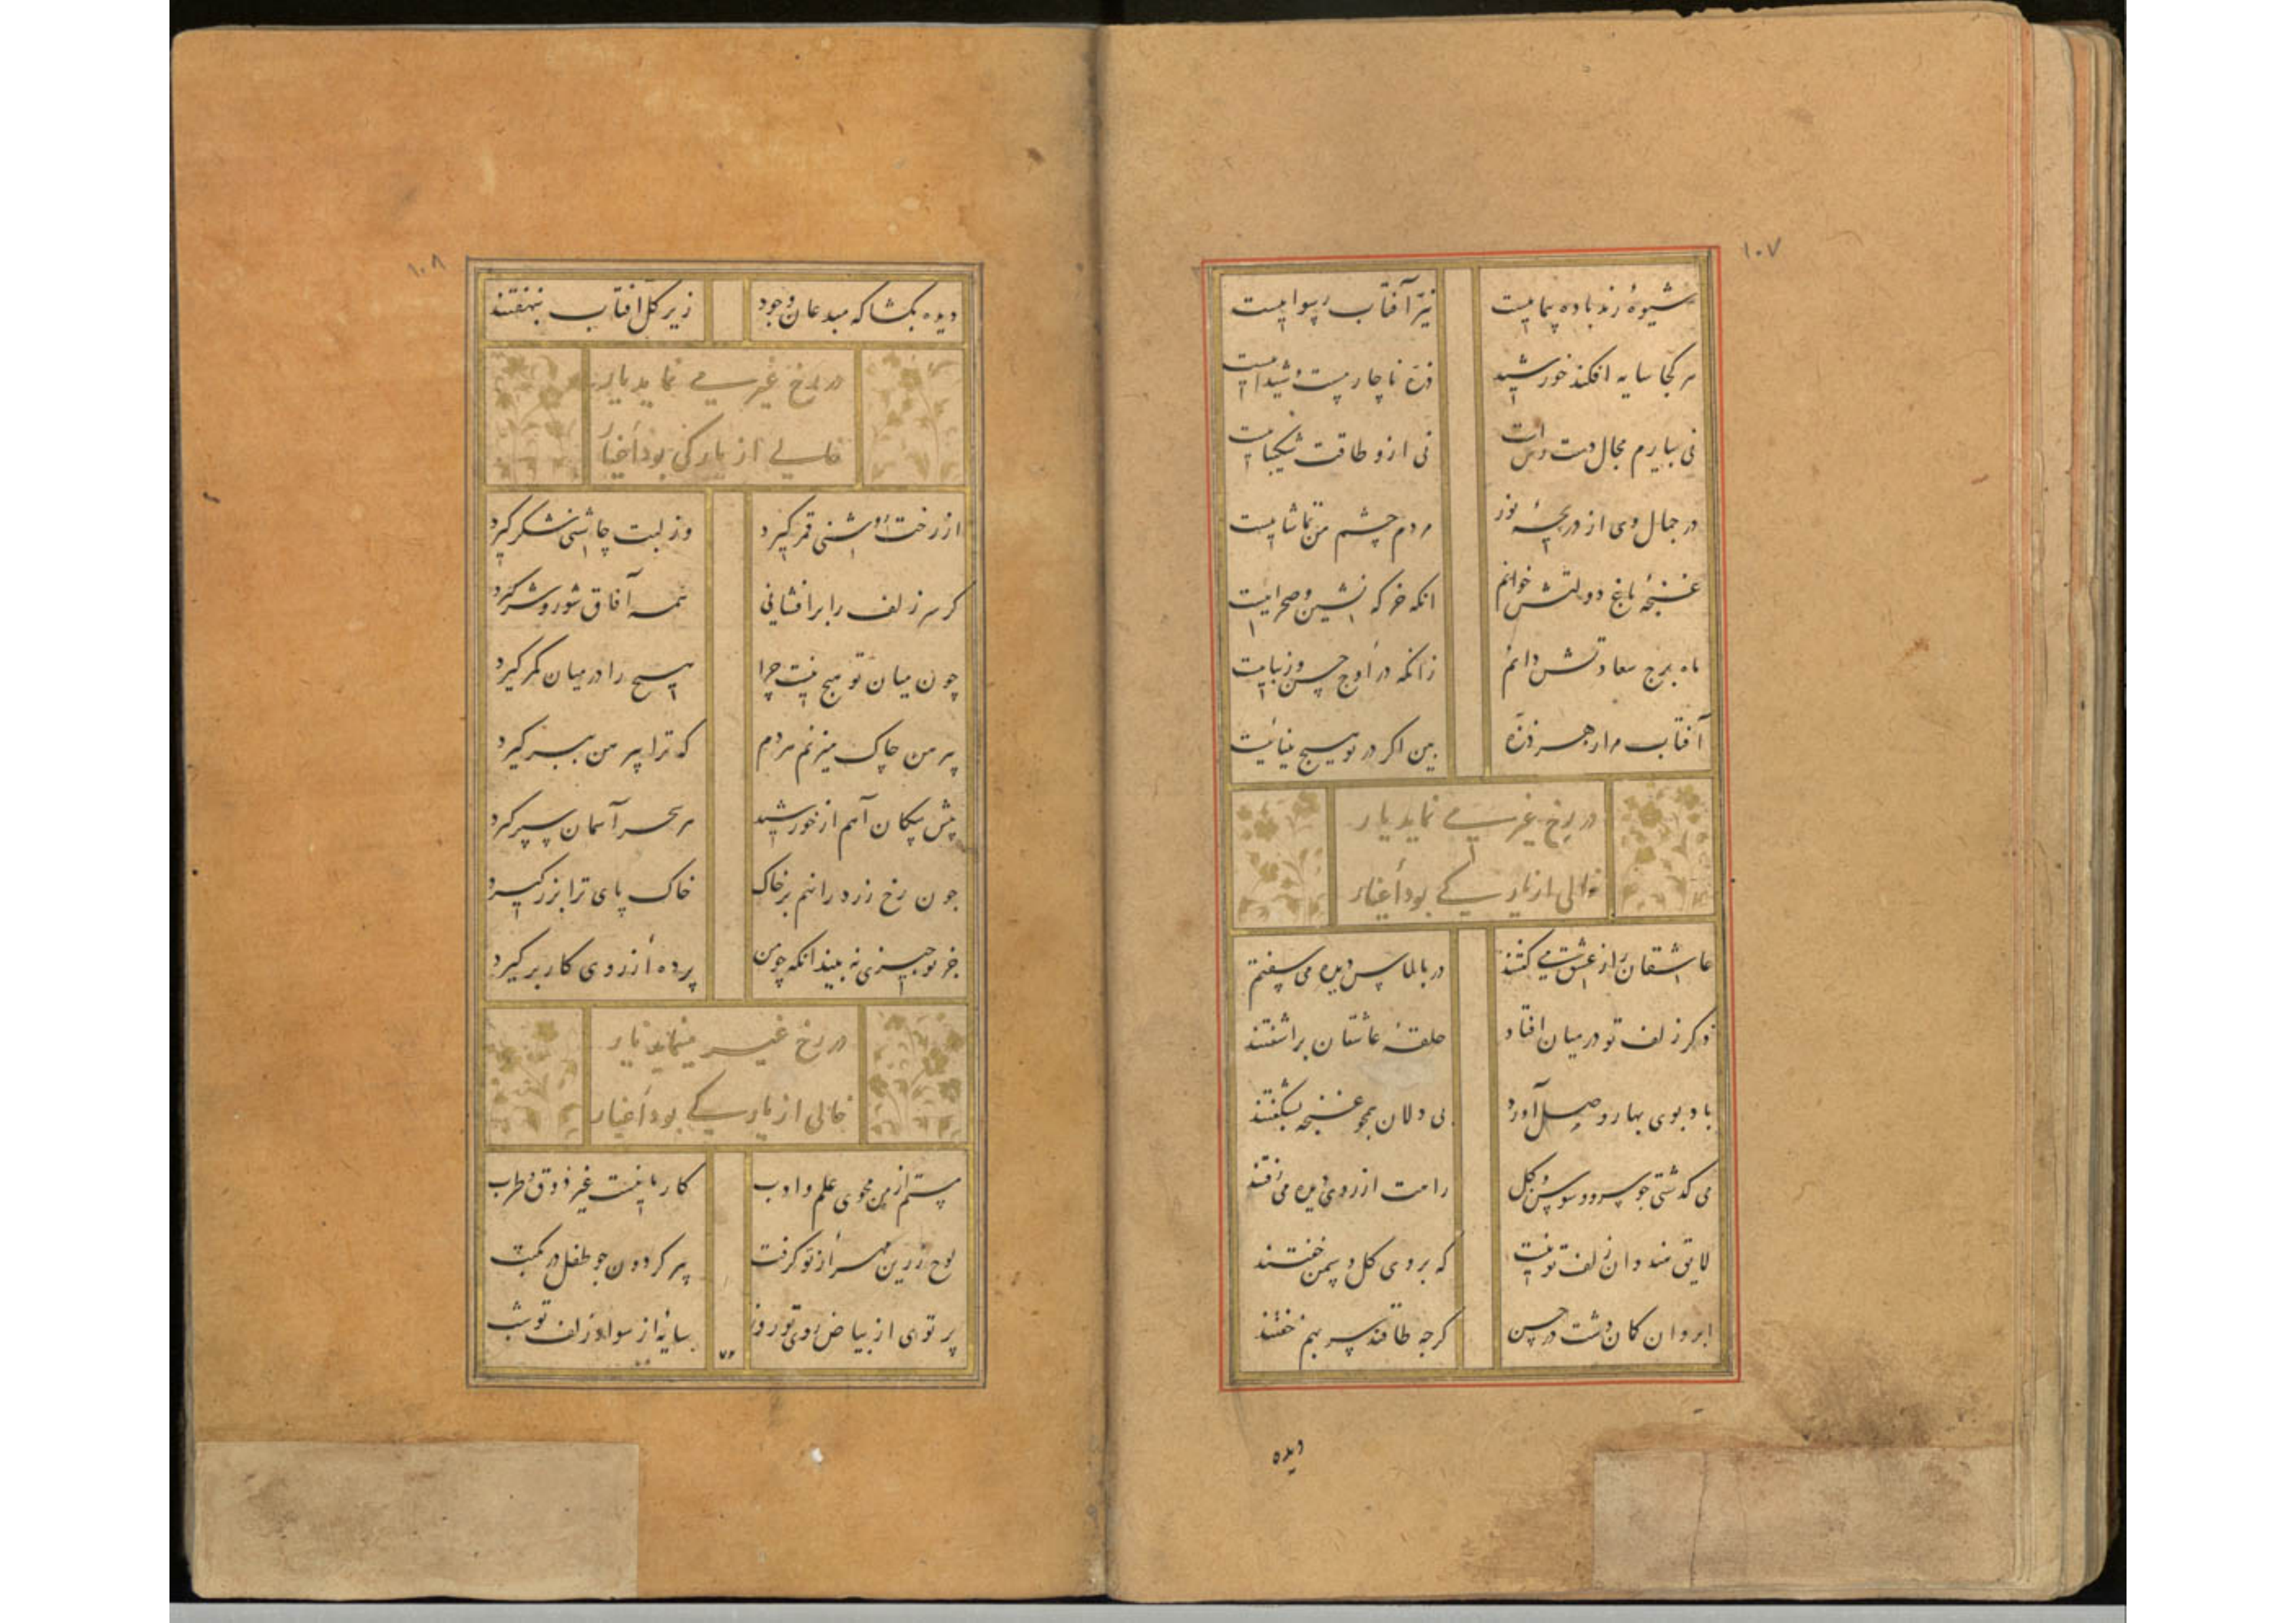 ۱۰۷
شیوهٔ رند باده پیماییست
نیز آفتاب رسواییست
هر کجا سایه افکند خورشید
ذرّه ناچار مست و شیداییست
نی بیارم مجال دست رس است
نی ازو طاقت شکیباییست
در جمال وی از دریچهٔ نور
مردم چشم من تماشاییست
غنچهٔ باغ دولتش خوانم
انکه خرکه نشین و صحراییست
ماه برج سعادتش دانم
زانکه در اوج حسن و زیباییست
آفتاب مرا ز هر ذرّه
ببین اکر در تو هیچ بیناییست
در رخ غیر می نماید یار
خالی از یار کی بود اغیار
عاشقان راز عشق می کفتند
در بالماس دیده می سفتند
ذکر زلف تو در میان افتاد
حلقهٔ عاشقان براشفتند
باد بوی بهار وصل آورد
بی دلان همچو غنچه بشکفتند
می کذشتی چو سرو و سوسن و کل
راهت از روی دیده می رفتند
لایق هندوان زلف تو نیست
که بر وی کل و سمن خفتند
ابروان کان دشت در حسن
کرچه طاقند سر بهم خفتند
دیده
۱۰۸
دیده بکشا که مبدعان وجود
زیر کل افتاب بنهفتند
در رخ غیر می نماید یار
خالی از یار کی بود اغیار
از رخت روشنی قمر کیرد
وز لبت چاشنی شکر کیرد
کر سر زلف را برافشانی
همه آفاق شور و شر کیرد
چون میان تو هیچ نیست چرا
هیچ را در میان کمر کیرد
پیرهن چاک میزنم هر دم
که ترا پیرهن ببر کیرد
پیش پیکان آهم از خورشید
هر سحر آسمان سپر کیرد
چون رخ زرد را نهم بر خاک
خاک پای ترا بزر کیرد
جز تو چیزی نه بیند انکه چو من
پرده از روی کار بر کیرد
در رخ غیر مینماید یار
خالی از یار کی بود اغیار
مستم از من مجوی علم و ادب
کار ما نیست غیر ذوق و طرب
لوح زرین مهر از تو کرفت
پیر کردون چو طفل در مکتب
پرتوی از بیاض روی تو روز
سایهٔ از سواد زلف تو شب